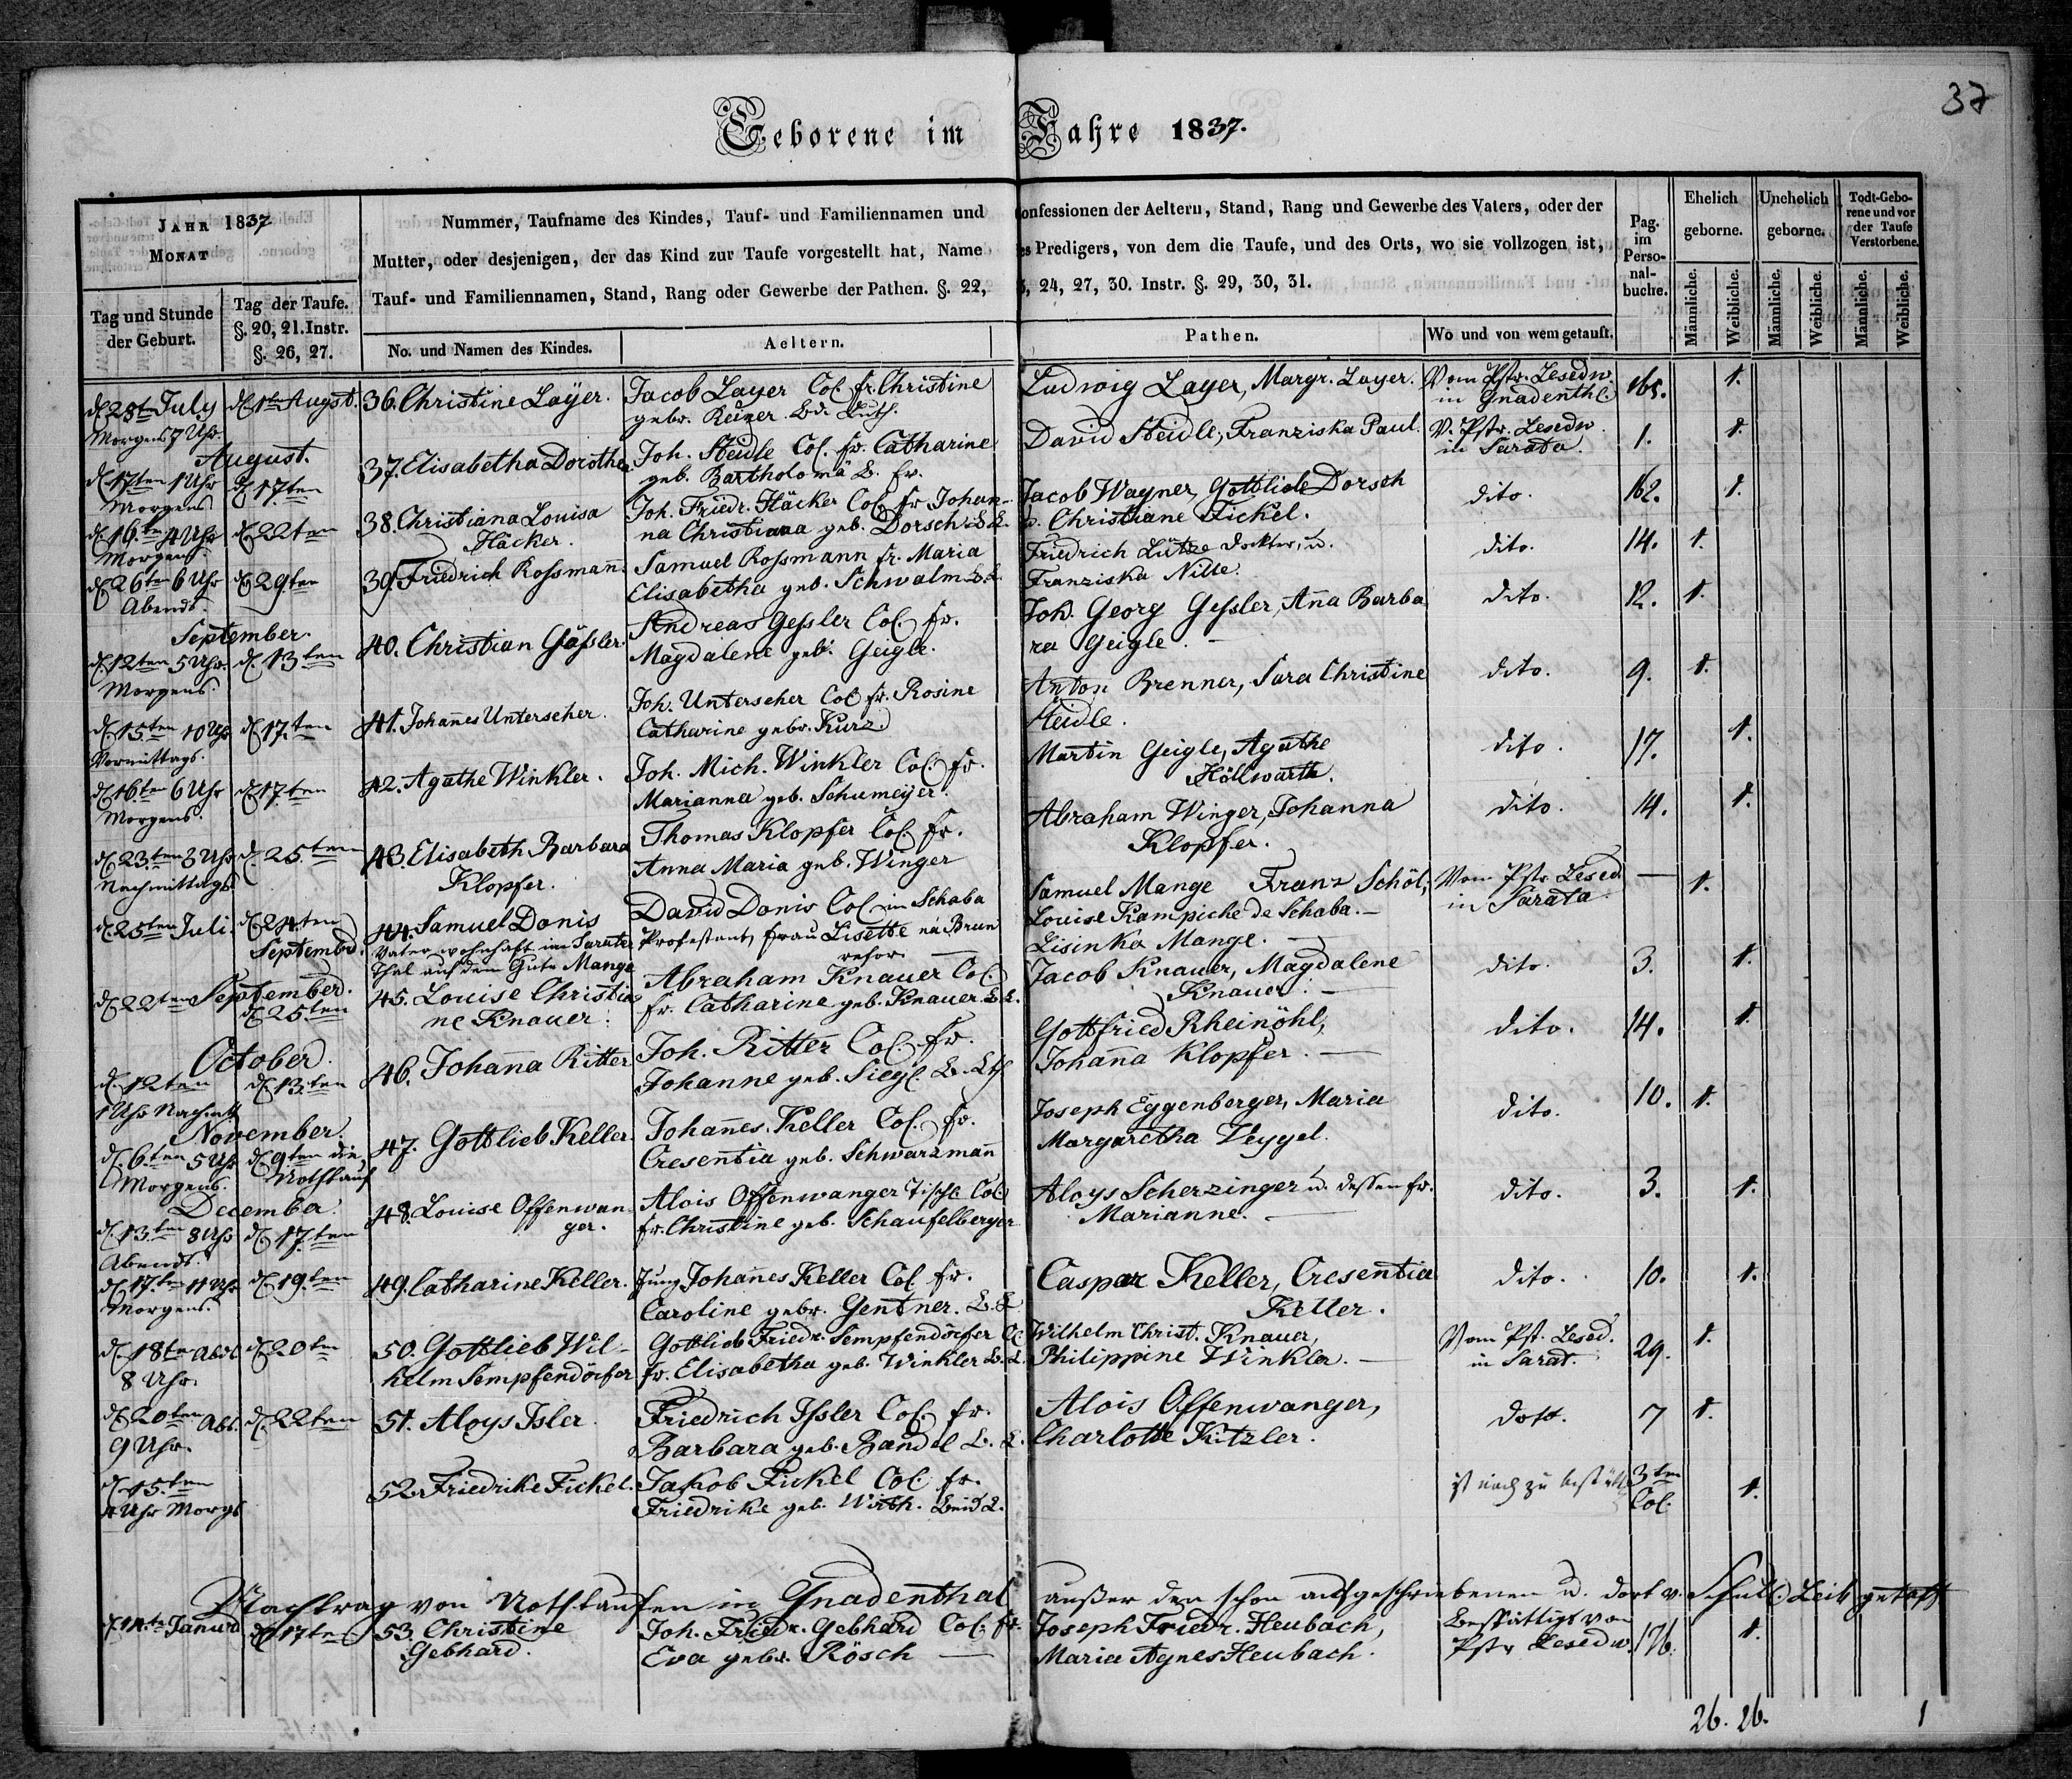 37
Geborene im Jahre 1837.
JAHR 1837
MONAT
Tag und Stunde der Geburt.
Tag der Taufe. §. 20, 21. Instr. §. 26, 27.
Nummer, Taufname des Kindes, Tauf- und Familiennamen und Confessionen der Aeltern, Stand, Rang und Gewerbe des Vaters, oder der
Mutter, oder desjenigen, der das Kind zur Taufe vorgestellt hat, Name des Predigers, von dem die Taufe, und des Orts, wo sie vollzogen ist,
Tauf- und Familiennamen, Stand, Rang oder Gewerbe der Pathen. §. 22, 23, 24, 27, 30. Instr. §. 29, 30, 31.
No. und Namen des Kindes.
Aeltern.
Pathen.
Wo und von wem getauft.
Pag. im Perso-nal-buche.
Ehelich geborne.
Unehelich geborne.
Todt-Gebo-rene und vor der Taufe Verstorbene.
Männliche. Weibliche. Männliche. Weibliche. Männliche. Weibliche.
d. 28t July Morgens 7 Uhr
d. 1ten Augst.
36. Christine Layer.
Jacob Layer Col. fr. Christine
gebr. Reuzer. Bd. Luth.
Ludwig Layer, Margr. Layer.
Vom Pstr. Lesedw.
in Gnadenthl.
165. 1.
August.
d. 17ten 1 Uhr Morgens
d. 17ten
37. Elisabetha Dorothea
Joh. Steidle Col. fr. Catharine
geb. Bartholomä
David Steidle, Franziska Paul.
V. Pstr. Lesedw.
in Sarata.
1. 1.
d. 19ten 4 Uhr Morgens
d. 22ten
38. Christiana Louisa
Häcker.
Joh. Friedr. Häcker Col. fr. Johan-
na Christiana geb. Dorsch
Jacob Wagner, Gottliebe Dorsch
u. Christiane Fickel.
dito.
162. 1.
d. 26ten 6 Uhr
Abends.
d. 29ten
39. Friedrich Rossmann.
Samuel Rossmann fr. Maria
Elisabetha geb. Schwalm B. L.
Friedrich Lütze Dokter, u.
Franziska Nille.
dito.
14. 1.
September.
d. 12ten 5 Uhr
Morgens.
d. 13ten
40. Christian Gässler.
Andreas Gessler Col. fr.
Magdalene geb. Geigle.
Joh. Georg Gessler, Anna Barba
ra Geigle.
dito.
12. 1.
d. 15ten 10 Uhr
Vormittags.
d. 17ten
41. Johannes Unterseher.
Joh. Unterseher Col. fr. Rosine
Catharine gebr. Kurz
Anton Brenner, Sara Christine
Steidle.
dito.
9. 1.
d. 16ten 6 Uhr
Morgens.
d. 17ten
42. Agathe Winkler.
Joh. Mich. Winkler Col. fr.
Marianna geb. Schumeyer.
Martin Geigle, Agathe
Höllwarth.
dito.
17. 1.
d. 23ten 3 Uhr
Nachmittags
d. 25ten
43. Elisabeth Barbara
Klopfer.
Thomas Klopfer Col. fr.
Anna Maria geb. Winger
Abraham Winger, Johanna
Klopfer.
dito.
14. 1.
d. 25ten Juli.
d. 24ten
Septembr.
44. Samuel Donis
Vater wohnhaft im Sarater
Thal auf dem Gute Mange
David Donis Col. in Schaba
Protestant, frau Lisette
refor.
Samuel Mange Franz Schöl,
Louise Kampiche de Schaba.
Lisinka Mange.
Vom Pstr. Lesed.
in Sarata
— 1.
September.
d. 22ten
d. 25ten
45. Louise Christia
ne Knauer.
Abraham Knauer Col.
fr. Catharine geb. Knauer. B. L.
Jacob Knauer, Magdalene
Knauer.
dito.
3. 1.
October.
d. 12ten
1 Uhr Nachmitt
d. 13ten
46. Johanna Ritter
Joh. Ritter Col. fr.
Johanne geb. Siegl.
Gottfried Rheinöhl,
Johanna Klopfer.
dito.
14. 1.
November
d. 6ten 5 Uhr
Morgens.
d. 9ten die
Nothtauf
47. Gottlieb Keller.
Johannes Keller Col. fr.
Cresentia geb. Schwarzmann
Joseph Eggenberger, Maria
Margaretha Veygel.
dito.
10. 1.
December.
d. 13ten 8 Uhr
Abends.
d. 17ten
48. Louise Offenwan-
ger.
Alois Offenwanger Tischl. Col.
fr. Christine geb. Schaufelberger
Aloys Scherzinger u. dessen fr.
Marianne.
dito.
3. 1.
d. 17ten 11 Uhr
Morgens.
d. 19ten
49. Catharine Keller.
Jung Johannes Keller Col. fr.
Caroline gebr. Gentner. B. L.
Caspar Keller, Cresentia
Keller.
dito.
10. 1.
d. 18ten Abd.
8 Uhr.
d. 20ten
50. Gottlieb Wil-
helm Sempfendörfer
Gottlieb Friedr. Sempfendörfer
fr. Elisabetha geb. Winkler B. L.
Wilhelm Christ. Knauer,
Philippine Winkler.
Vom Pst. Lesed.
in Sarat.
29. 1.
d. 20ten Abd.
9 Uhr.
d. 22ten
51. Aloys Isler.
Friedrich Issler Col. fr.
Barbara geb. Bandel B. L.
Alois Offenwanger,
Charlotte Kitzler.
doto.
7 1.
d. 15ten
4 Uhr Morgs
52. Friedrike Fickel.
Jakob Fickel Col. fr.
Friedrike geb. Wirth. Beid L.
ist noch zu
3ten
Col.
1.
Nachtrag von Nothtaufen in Gnadenthal ausser den schon aufgeschriebenen u. dort v. Schull. Leib getaft
d. 14te Janur
d. 17ten
53. Christine
Gebhard.
Joh. Friedr. Gebhard Col. fr.
Eva gebr. Rösch
Joseph Friedr. Heubach,
Maria Agnes Heubach.
Besttättigt von
Pstr Lesedw.
176. 1.
26. 26. 1